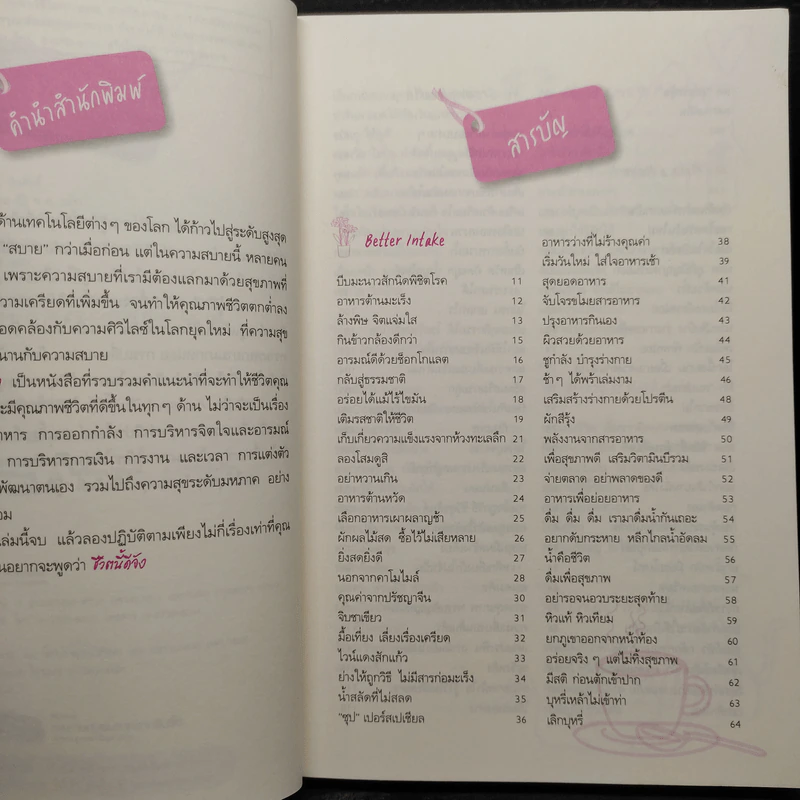 คำนำสำนักพิมพ์
ด้านเทคโนโลยีต่างๆ ของโลก ได้ก้าวไปสู่ระดับสูงสุด
"สบาย" กว่าเมื่อก่อน แต่ในความสบายนี้ หลายคน
เพราะความสบายที่เรามีต้องแลกมาด้วยสุขภาพที่
วามเครียดที่เพิ่มขึ้น จนทำให้คุณภาพชีวิตตกต่ำลง
อดคล้องกับความศิวิไลซ์ในโลกยุคใหม่ ที่ความสุข
นานกับความสบาย
เป็นหนังสือที่รวบรวมคำแนะนำที่จะทำให้ชีวิตคุณ
ะมีคุณภาพชีวิตที่ดีขึ้นในทุกๆ ด้าน ไม่ว่าจะเป็นเรื่อง
าหาร การออกกำลัง การบริหารจิตใจและอารมณ์
การบริหารการเงิน การงาน และเวลา การแต่งตัว
พัฒนาตนเอง รวมไปถึงความสุขระดับมหภาค อย่าง
อม
เล่มนี้จบ แล้วลองปฏิบัติตามเพียงไม่กี่เรื่องเท่าที่คุณ
นอยากจะพูดว่า ชีวิตนี้ดีจัง
สารบัญ
Better Intake
บีบมะนาวสักนิดพิชิตโรค 11
อาหารต้านมะเร็ง 12
ล้างพิษ จิตแจ่มใส 13
กินข้าวกล้องดีกว่า 15
อารมณ์ดีด้วยช็อกโกแลต 16
กลับสู่ธรรมชาติ 17
อร่อยได้แม้ไร้ไขมัน 18
เติมรสชาติให้ชีวิต 19
เก็บเกี่ยวความแข็งแรงจากห้วงทะเลลึก 21
ลองโสมดูสิ 22
อย่าหวานเกิน 23
อาหารต้านหวัด 24
เลือกอาหารเผาผลาญช้า 25
ผักผลไม้สด ซื้อไว้ไม่เสียหลาย 26
ยิ่งสดยิ่งดี 27
นอกจากคาโมไมล์ 28
คุณค่าจากปรัชญาจีน 30
จิบชาเขียว 31
มื้อเที่ยง เลี่ยงเรื่องเครียด 32
ไวน์แดงสักแก้ว 33
ย่างให้ถูกวิธี ไม่มีสารก่อมะเร็ง 34
น้ำสลัดที่ไม่สลด 35
"ซุป" เปอร์สเปเชียล 36
อาหารว่างที่ไม่ร้างคุณค่า 38
เริ่มวันใหม่ ใส่ใจอาหารเช้า 39
สุดยอดอาหาร 41
จับโจรขโมยสารอาหาร 42
ปรุงอาหารกินเอง 43
ผิวสวยด้วยอาหาร 44
ชูกำลัง บำรุงร่างกาย 45
ช้าๆ ได้พร้าเล่มงาม 46
เสริมสร้างร่างกายด้วยโปรตีน 48
ผักสีรุ้ง 49
พลังงานจากสารอาหาร 50
เพื่อสุขภาพดี เสริมวิตามินบีรวม 51
จ่ายตลาด อย่าพลาดของดี 52
อาหารเพื่อย่อยอาหาร 53
ดื่ม ดื่ม ดื่ม เรามาดื่มน้ำกันเถอะ 54
อยากดับกระหาย หลีกไกลน้ำอัดลม 55
น้ำคือชีวิต 56
ดื่มเพื่อสุขภาพ 57
อย่ารอจนอวบระยะสุดท้าย 58
หิวแท้ หิวเทียม 59
ยกภูเขาออกจากหน้าท้อง 60
อร่อยจริงๆ แต่ไม่ทิ้งสุขภาพ 61
มีสติ ก่อนตักเข้าปาก 62
บุหรี่เหล้าไม่เข้าท่า 63
เลิกบุหรี่ 64